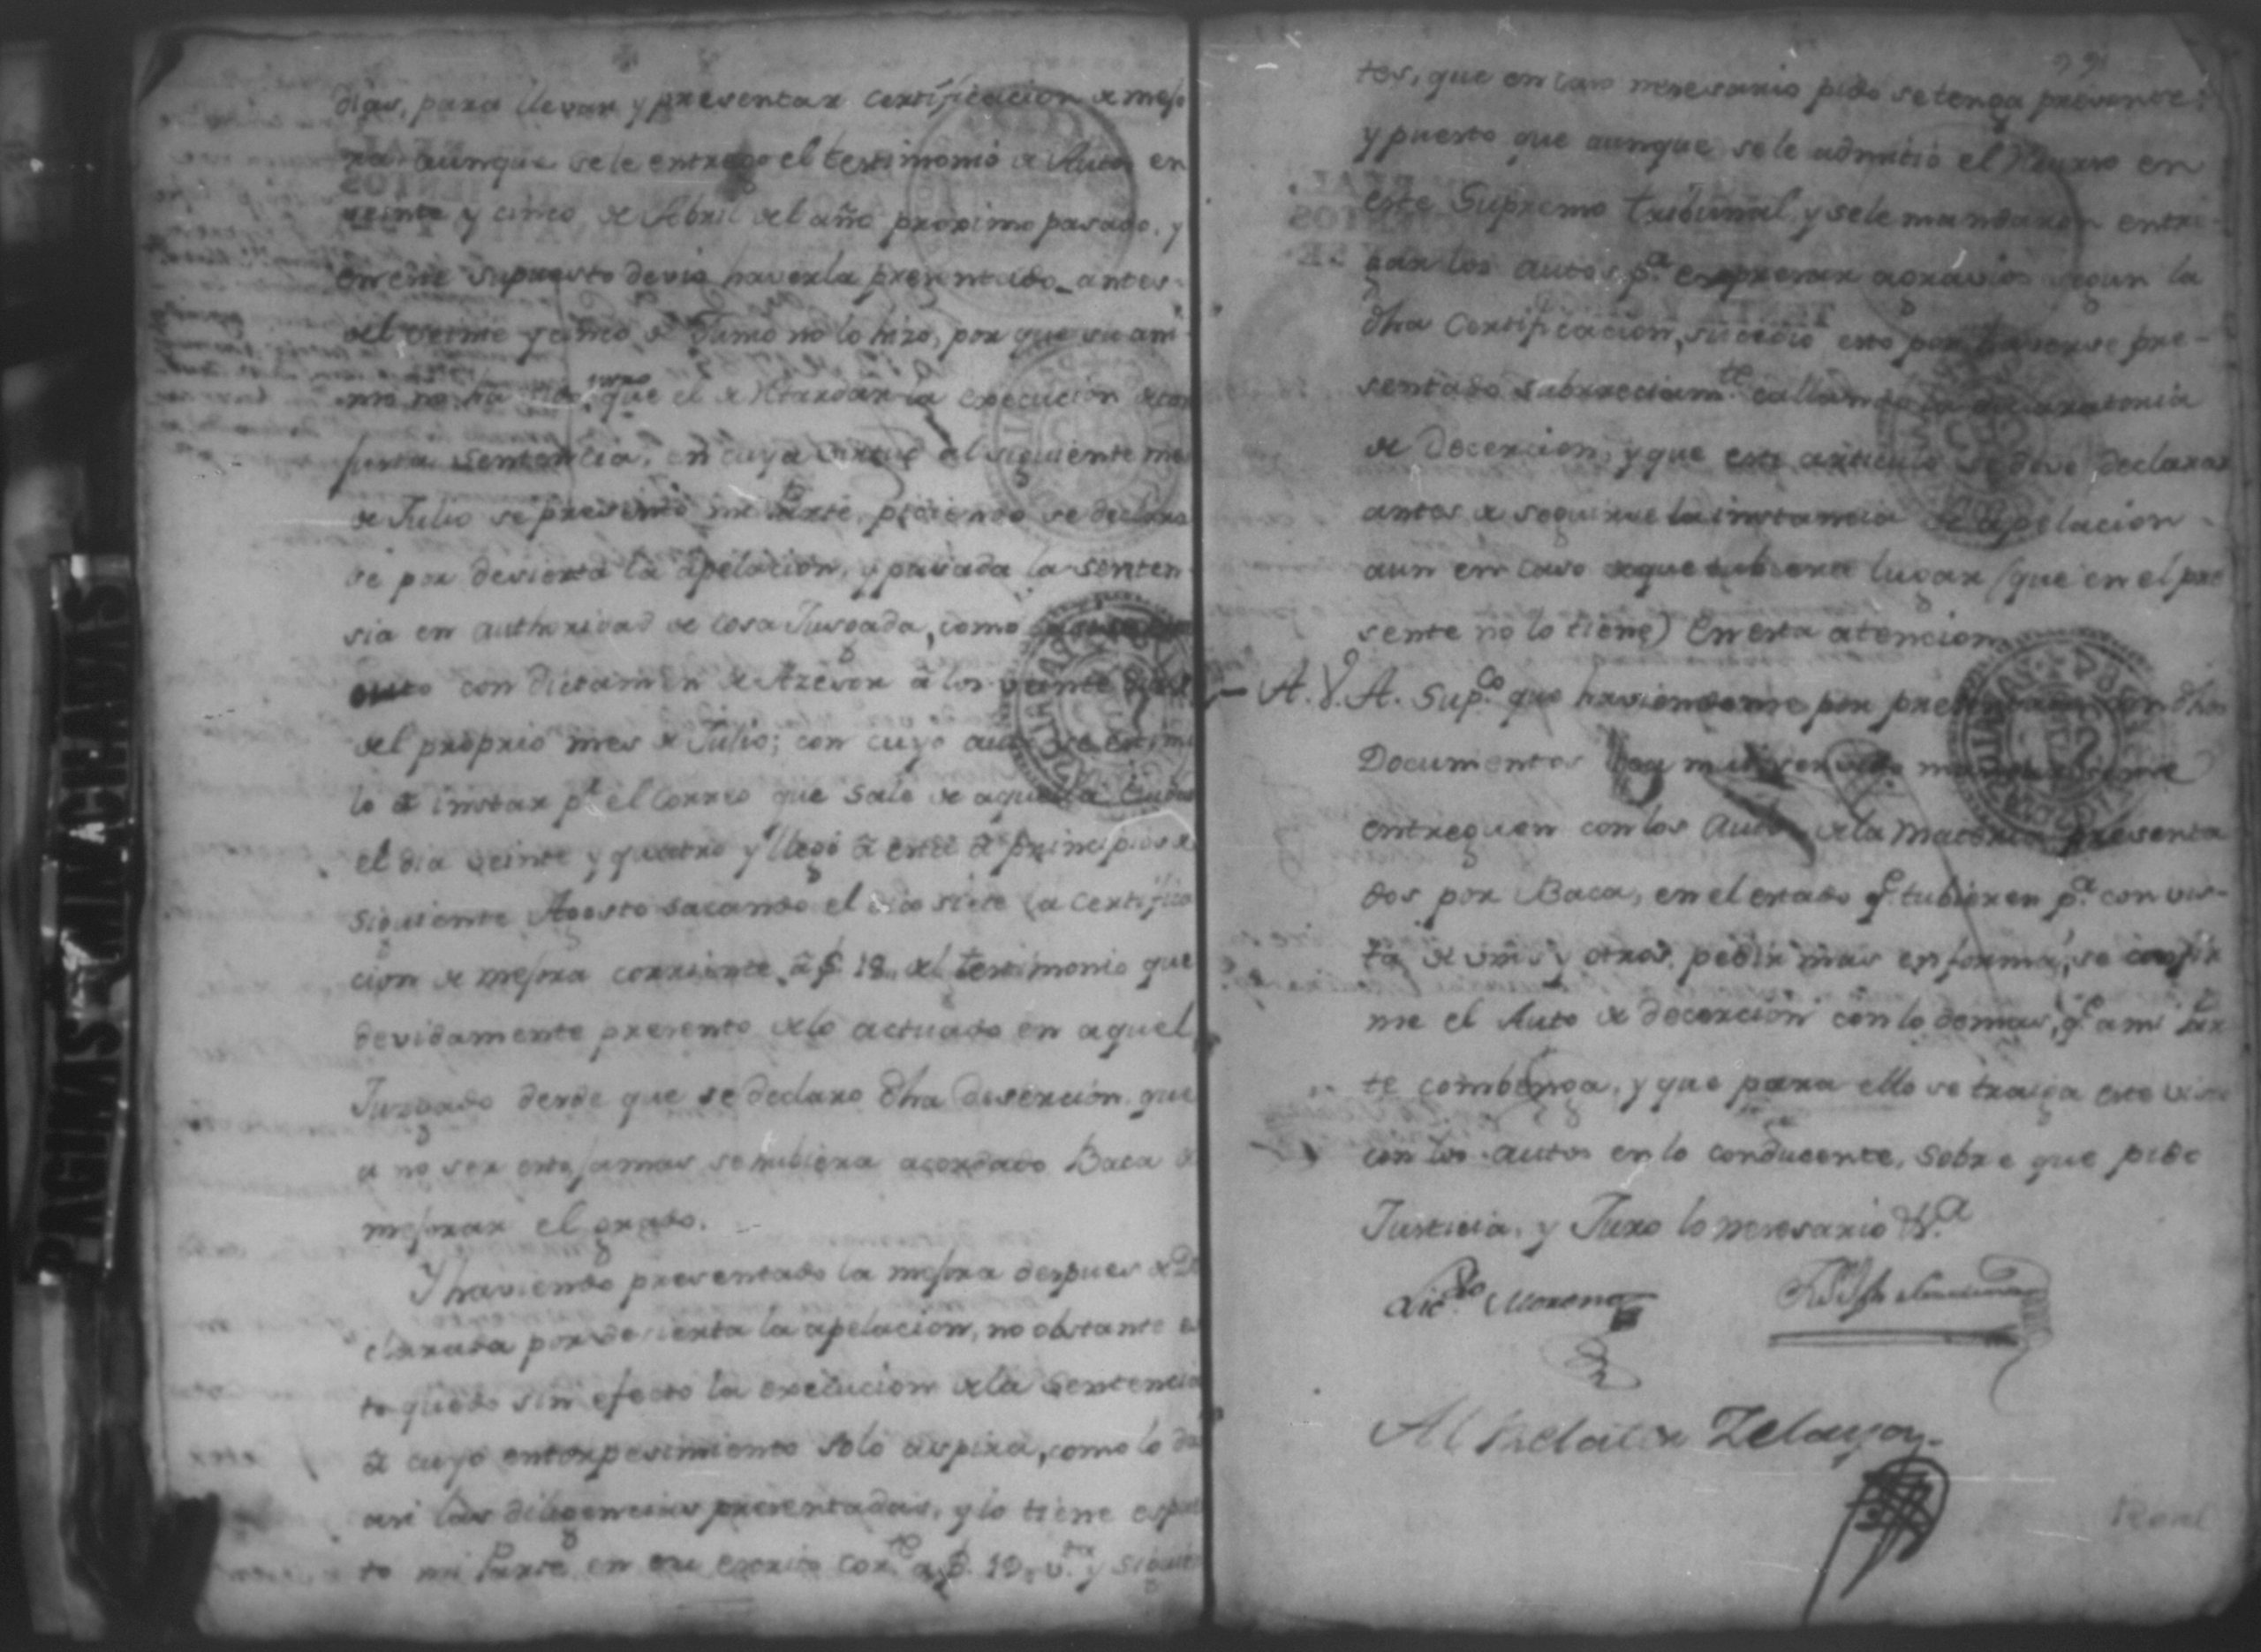 dias, para llevar y presentar Certificacion de mejo
ra aunque se le entrego el testimonio de Autos en
veinte y cinco de Abril del año proximo pasado, y
en este supuesto devio haverla presentado antes
del veinte y cinco de Junio no lo hizo, por que su ani
mo no ha sido otro que el de Retardar la execucion de tan
justa sentencia, en cuya virtud al siguiente mes
de Julio se presentó mi Parte, pidiendo se declara
se por desierta la apelacion, y pasada la senten
sia en authoridad de cosa Jusgada, como
con dictamen de Azesor â los veinte
del proprio mes de Julio; con cuyo
lo â instar pª el Correo que sale de aquella Ciudad
el dia veinte y quatro y llegó â esta â principios de
siguiente Agosto sacando el dia siete la Certifica
cion de mejora corriente â f. 18. del testimonio que
devidamente presento de lo actuado en aquel
Jusgado desde que se declaro dha desercion que
a no ser esto jamas se hubiera acordado Baca de
mejorar el grado.
Y haviendo presentado la mejora despues de De
clarada por desierta la apelacion, no obstante es
to quedo sin efecto la execucion de la Sentencia
â cuyo entorpesimiento solo aspira, como lo
asi las diligencias presentadas, y lo tiene espues
to mi Parte en su escrito corte a f. 19. vta y siguien
tes, que en caso nesesario pido se tenga presente;
y puesto que aunque se le admitió el Recurso en
este Supremo tribunal y se le mandaron entre
gar los autos pª expresar agravios segun la
dha Certificacion, sucedio esto por haverse pre-
sentado subrreciamte callando la declaratoria
de Decercion, y que este articulo se deve declarar
antes de seguirse la instancia de apelacion
aun en caso de que tubiera lugar (que en el pre
sente no lo tiene) En esta atencion
A. V. A. Supco que haviendome por presentado con dhos
Documentos
entreguen con los Autos de la Materia presenta
dos por Baca, en el estado qe tubieren pª con vis-
ta de unos y otros, pedir mas en forma, se confir
me el Auto de decercion con lo demas, qe a mi Par
te combenga, y que para ello se traiga este
con los autos en lo conducente, sobre que pido
Justicia, y Juro lo nesesario &ª
Licdo Moreno
Al Relator Zelaya